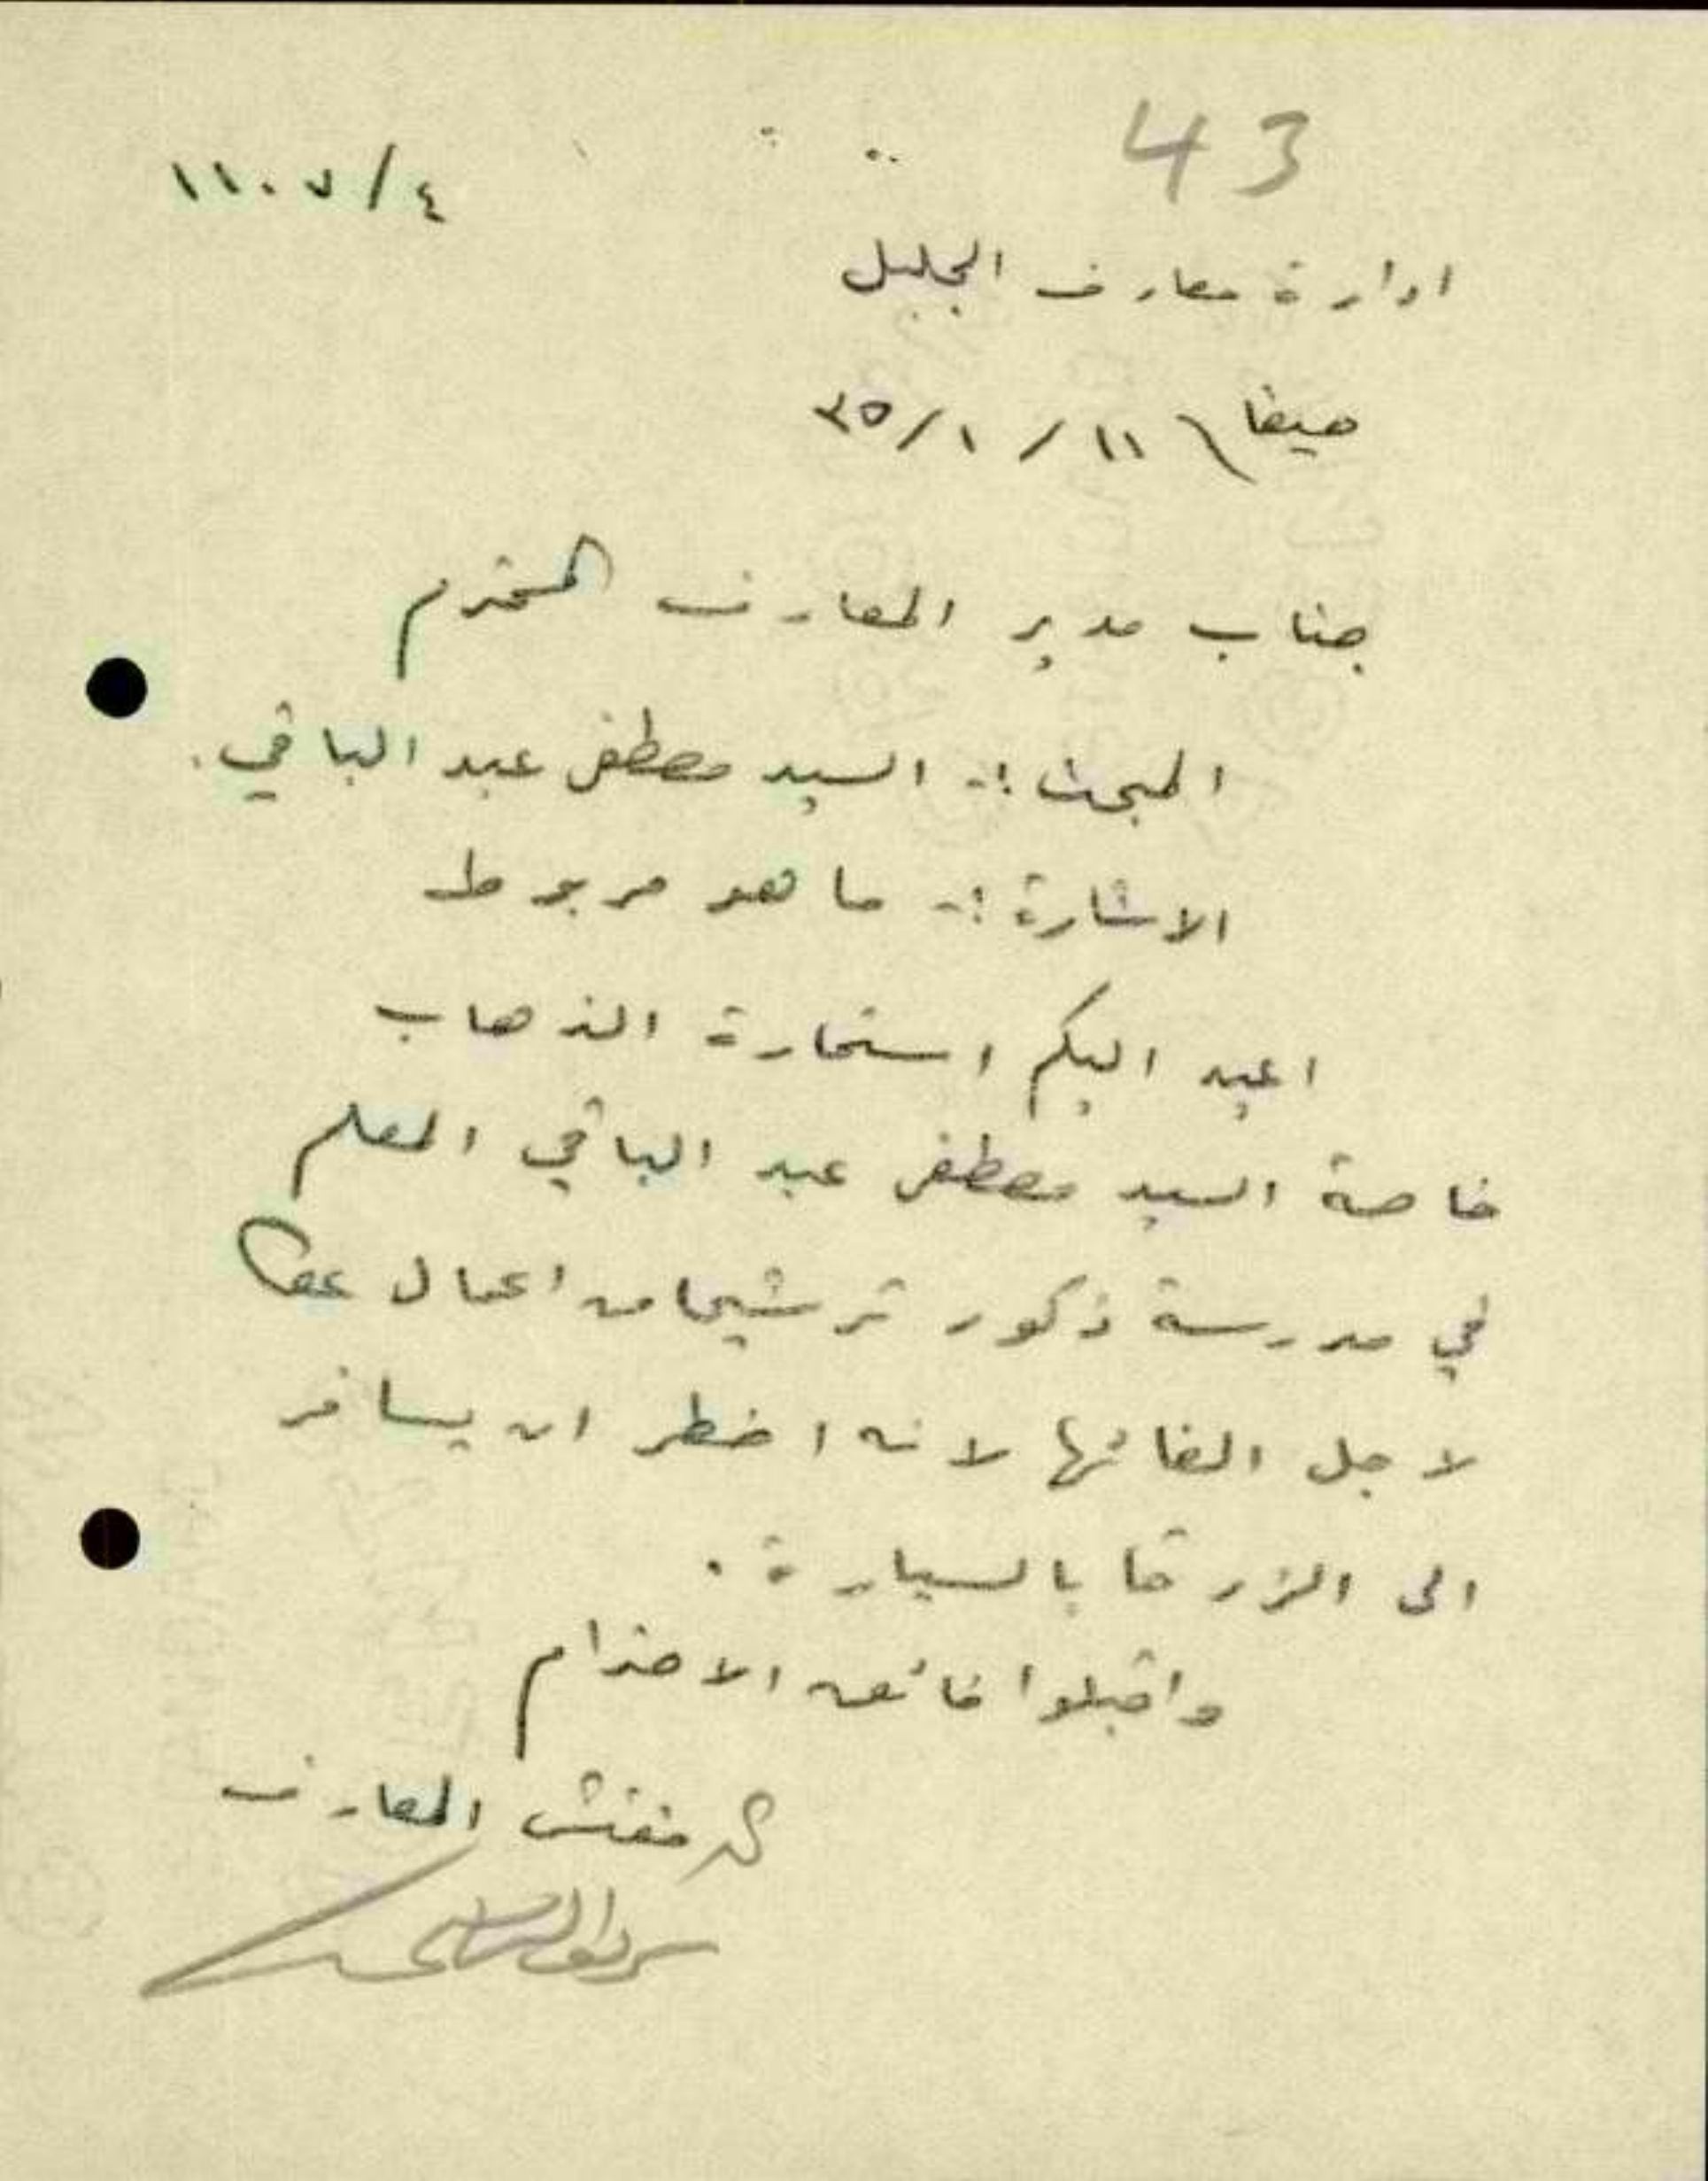 43
١١٠٧/٤
ادارة معارف الجليل
حيفا \ ١١/١/٣٥
جناب مدير المعارف المحترم
المبحث :- السيد مصطفى عبد الباقي.
الاشارة :- ما هو مربوط
اعيد اليكم استمارة الذهاب
خاصة السيد مصطفى عبد الباقي المعلم
في مدرسة ذكور ترشيحا من اعمال عكا
لاجل الغائها لانه اضطر ان يسافر
الى الزرقا بالسيارة.
واقبلوا فائق الاحترام
مفتش المعارف